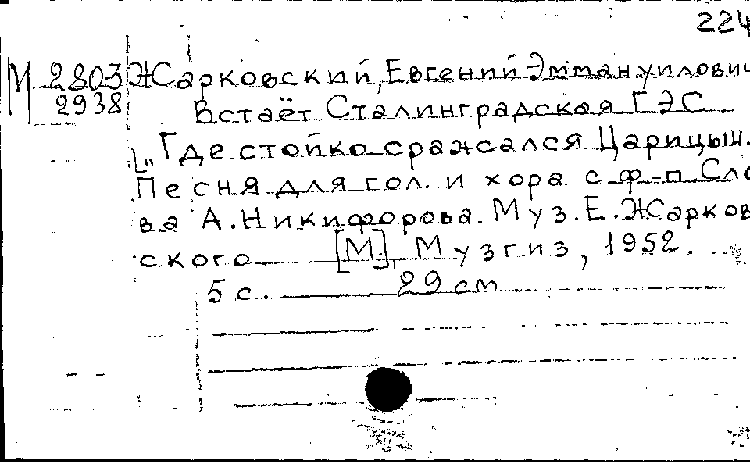 224
М 2803 Жарковский, Евгений Эммануилович
2938 Встаёт Сталинградская ГЭС
[„Где стойко сражался Царицын.
Песня для гол. и хора с ф-п Сло
ва А. Никифорова. Муз. Е. Жарков
ского [М] Музгиз, 1952.
5 с. 29 см